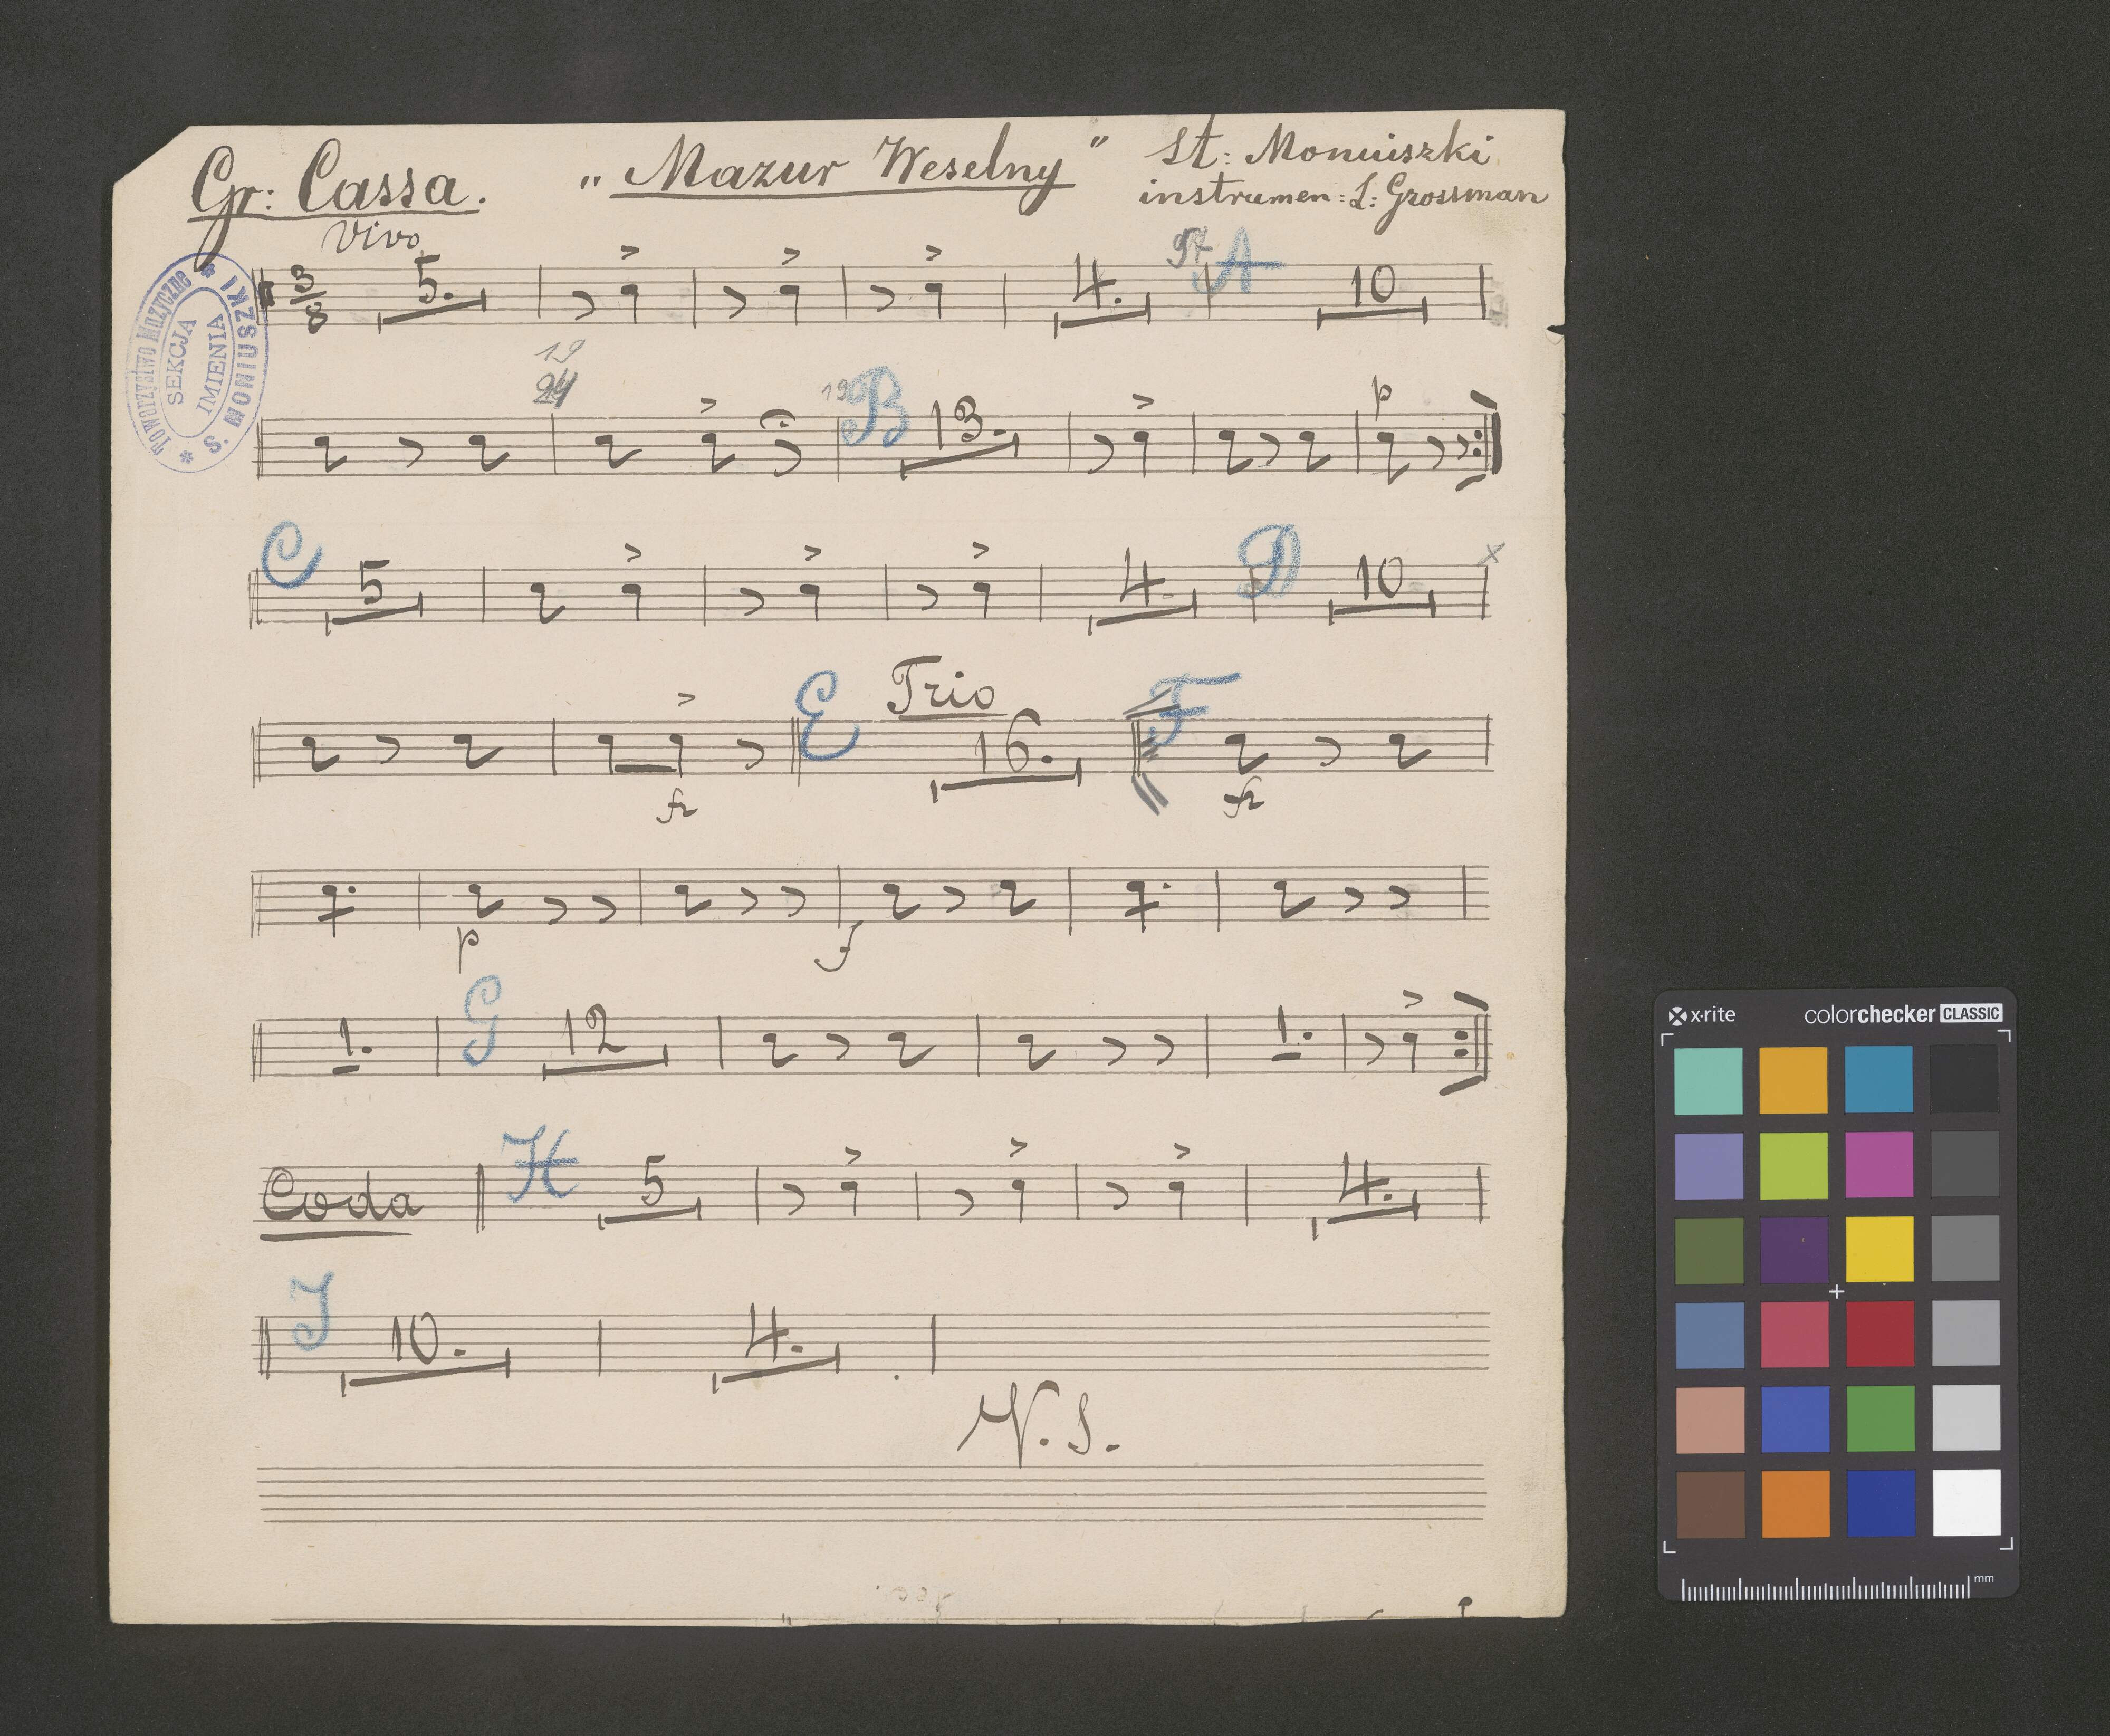 Gr: Cassa. „Mazur Weselny" St: Moniuszki
instrumen: L: Grossman
Vivo
Towarzystwo Muzyczne
SEKCJA
IMIENIA
S. MONIUSZKI
3
8
5. 4. A 10
19
24
B 13. p
C 5 4. D 10 x
E Trio 16. F
fz fz
p f
1. G 12 1.
Coda H 5 4.
J 10. 4.
V. S.
x·rite colorchecker CLASSIC
mm